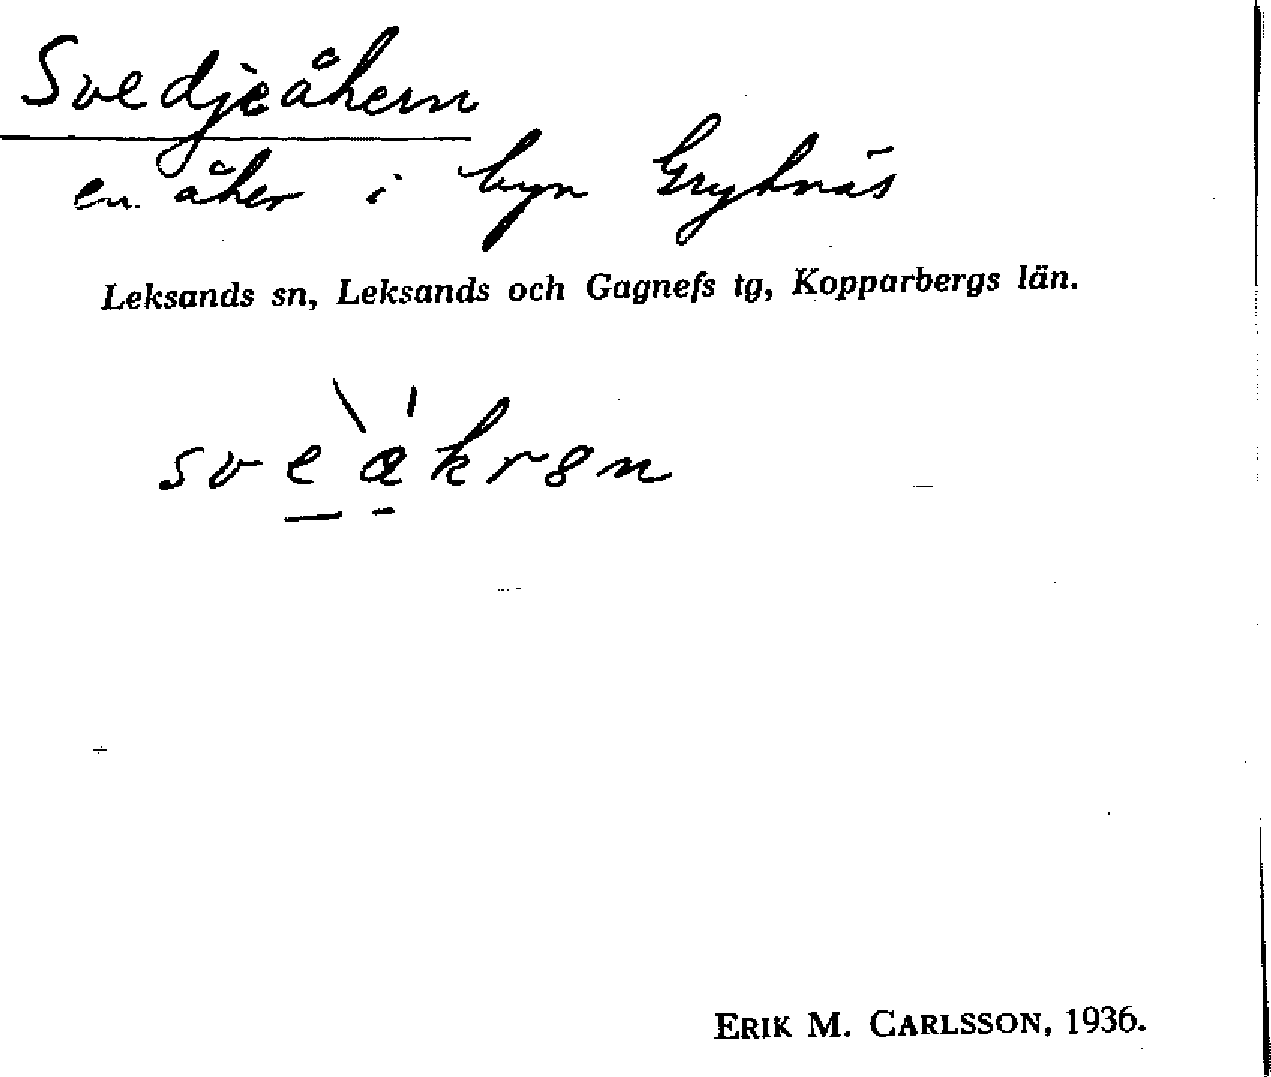 Svedjeåkern
en åker i byn Grytnäs
Leksands sn, Leksands och Gagnefs tg, Kopparbergs län.
Erik M. Carlsson, 1936.